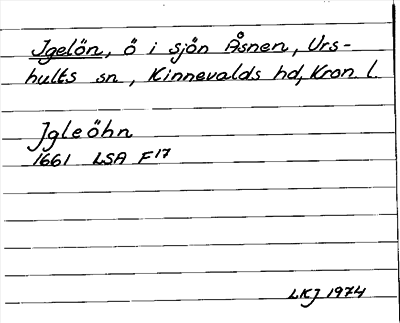 Jgelön, ö i sjön Åsnen, Urs-
hults sn, Kinnevalds hd, Kron. l.
Jgleöhn
1661 LSA F17
LKJ 1974